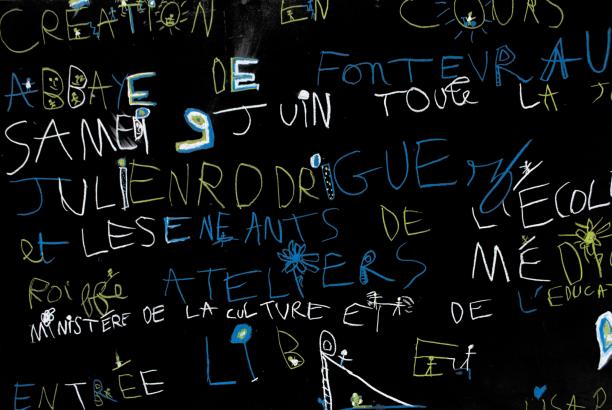 CRÉATION EN COURS
ABBAYE DE FONTEVRAU
SAMEDI 9 JUIN TOUTE LA J
JULIEN RODRIGUEZ
et LES ENFANTS DE L'ÉCOL
ROIFFÉ ATELIERS MÉDI
MINISTÈRE DE LA CULTURE ET DE L'ÉDUCAT
ENTRÉE LIBRE